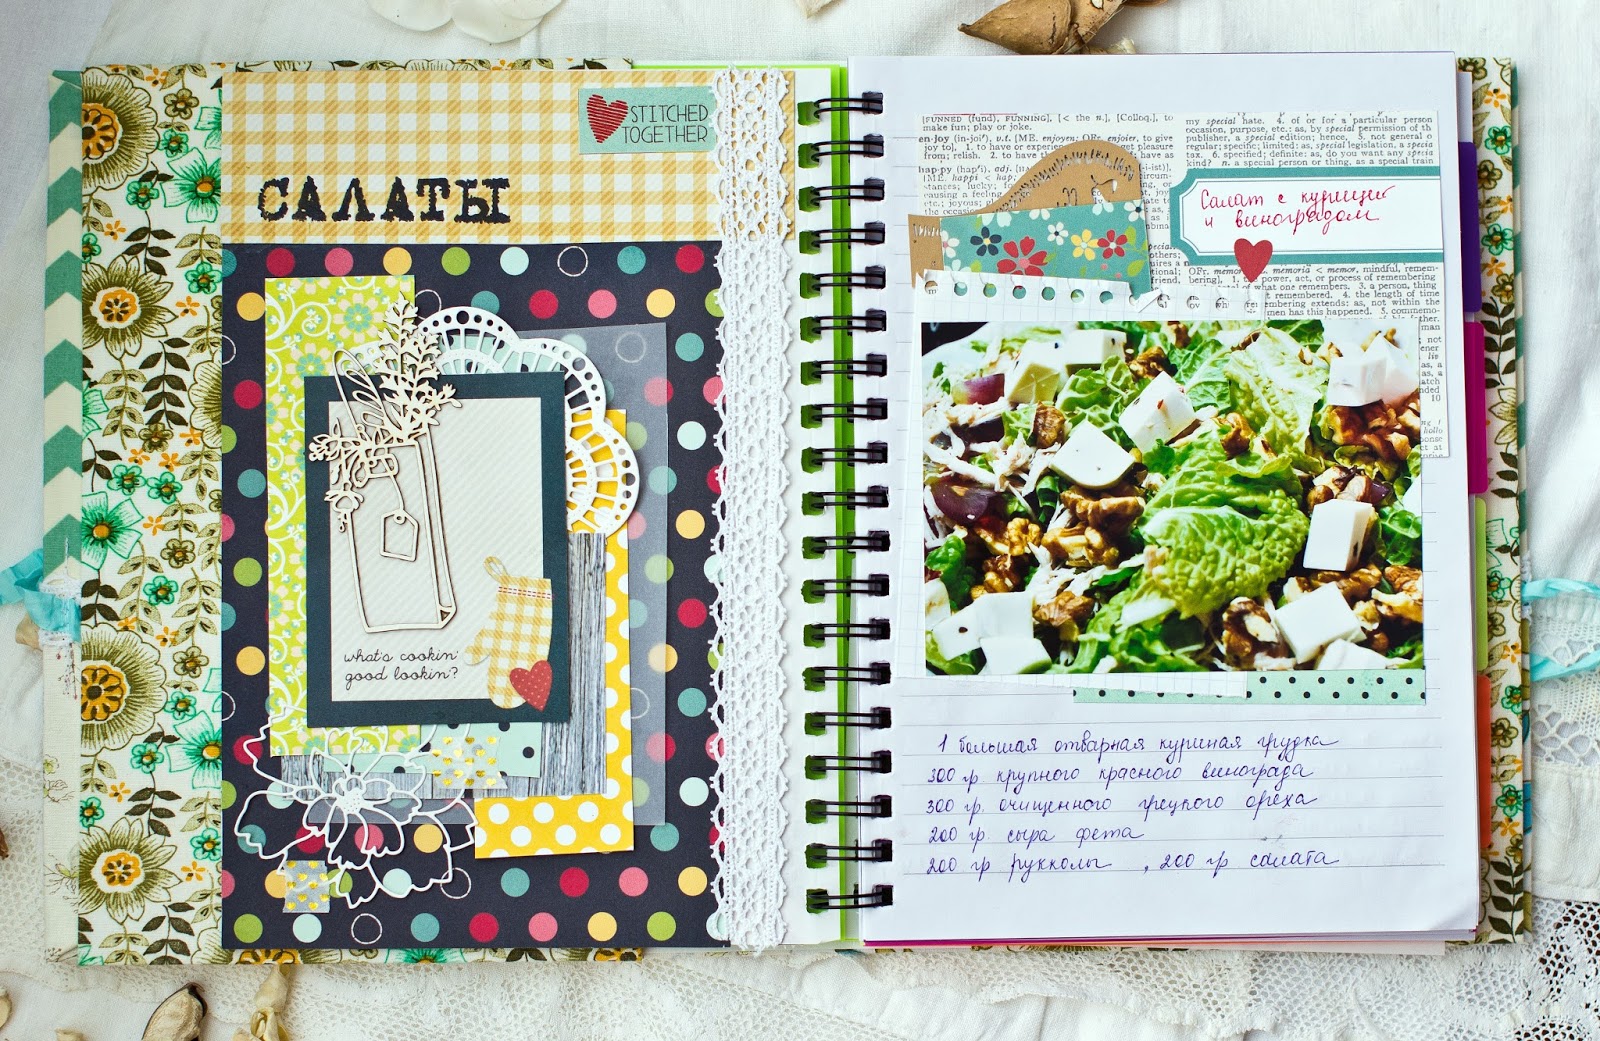 STITCHED
TOGETHER
САЛАТЫ
what's cookin'
good lookin'?
[FUNNED (fund), FUNNING], [< the n.], [Colloq.], to
make fun; play or joke.
en-joy (in-joi'), v.t. [ME. enjoyen; OFr. enjoier, to give
joy to]. 1. to have or get pleasure
from; relish. 2. to have the have as
hap-py (hap'i), adj.
[ME. happi < hap;
stances; lucky;
causing a feeling
etc.; joyous;
the occasion
my special hate. 4. of or for a particular person
occasion, purpose, etc.: as, by special permission of th
publisher, a special edition; hence, 5. not general o
regular; specific; limited: as, special legislation, a specia
tax. 6. specified; definite: as, do you want any specia
kind? n. a special person or thing, as a special train
Салат с курицей
и виноградом
OFr. memorie < memor, mindful, remem-
bering], 1. power, act, or process of remembering
what one remembers. 3. a person, thing
remembered. 4. the length of time
remembering extends: as, not within the
men has this happened. 5. commemo-
1 большая отварная куриная грудка
300 гр. крупного красного винограда
300 гр. очищенного грецкого ореха
200 гр. сыра фета
200 гр рукколы , 200 гр. салата